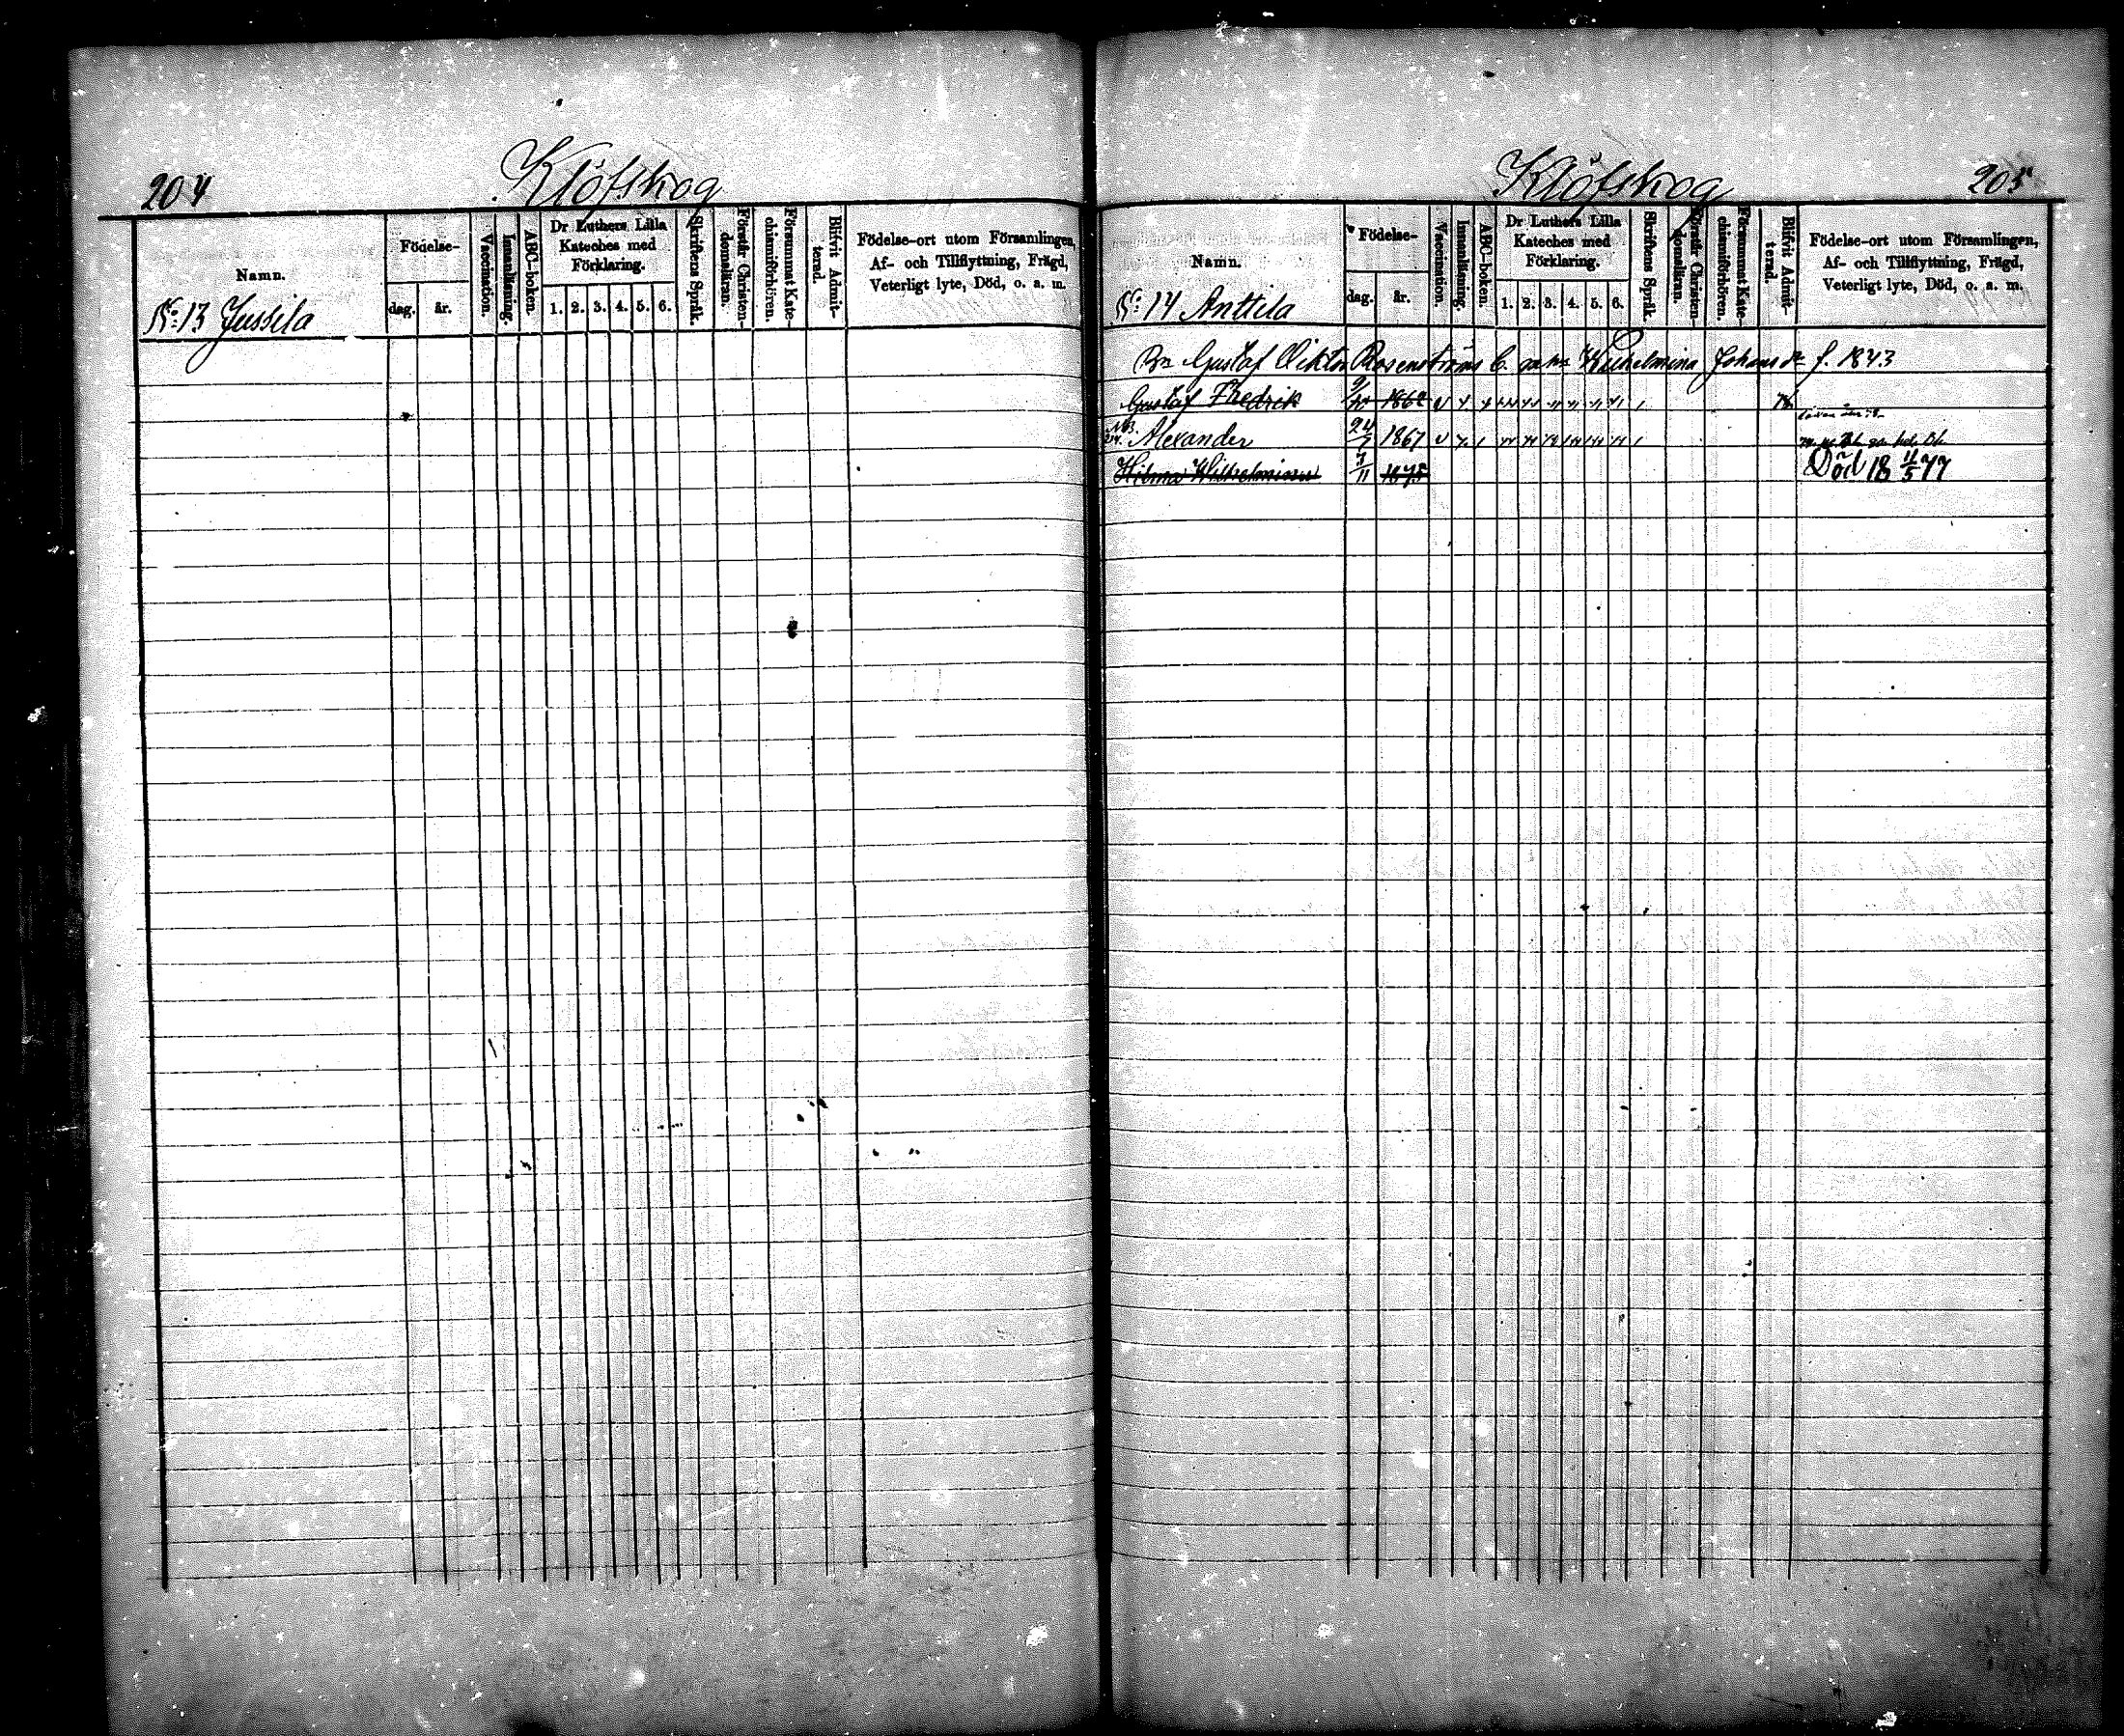 204
Klöfskog
Namn.
Födelse-
dag.
år.
Vaccination.
Innanläsning.
ABC-boken.
Dr Luthers Lilla
Kateches med
Förklaring.
1. 2. 3. 4. 5. 6.
Skriftens Språk.
Förstår Christen-
domsläran.
Försummat Kate-
chismiförhören.
Blifvit Admit-
terad.
Födelse-ort utom Församlingen,
Af- och Tillflyttning, Frägd,
Veterligt lyte, Död, o. a. m.
No: 13 Jussila
Klöfskog
205
Namn.
Födelse-
dag.
år.
Vaccination.
Innanläsning.
ABC-boken.
Dr Luthers Lilla
Kateches med
Förklaring.
1. 2. 3. 4. 5. 6.
Skriftens Språk.
Förstår Christen-
domsläran.
Försummat Kate-
chismiförhören.
Blifvit Admit-
terad.
Födelse-ort utom Församlingen,
Af- och Tillflyttning, Frägd,
Veterligt lyte, Död, o. a. m.
No: 14 Anttila
Bn Gustaf Viktor Rosenströms Wilhelmina Johans dr f. 1843
Gustaf Fredrik 1862
Alexander 24/7 1867
Hilma Wilhelmina 7/11 1875 Död 18 11/5 77